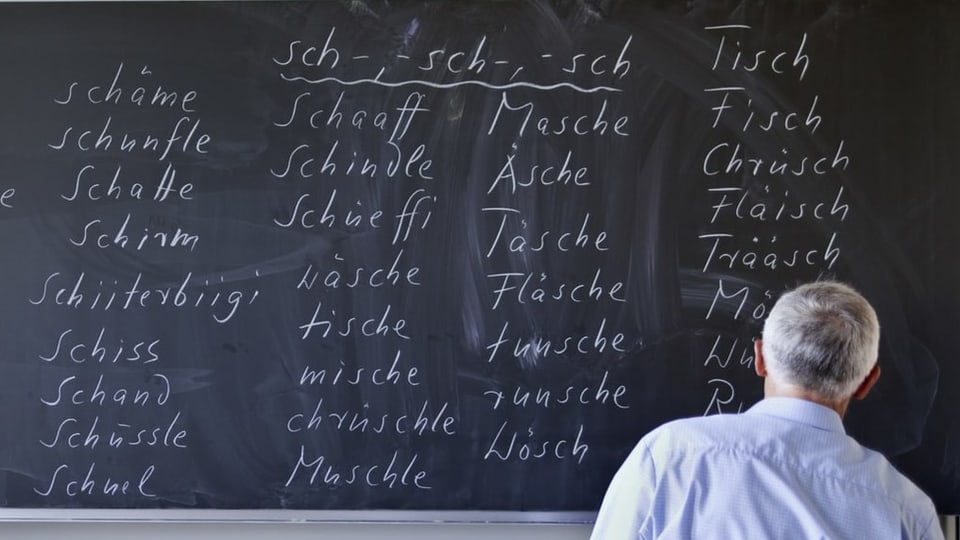 sch-, -sch-, -sch
schäme
schunfle
Schatte
Schirm
Schiiterbiigi
Schiss
Schand
Schüssle
Schuel
Schaaff
Schindle
Schüeffi
wäsche
tische
mische
chrüschle
Muschle
Masche
Äsche
Täsche
Fläsche
tuusche
ruusche
Wösch
Tisch
Fisch
Chrüsch
Fläisch
Trääsch